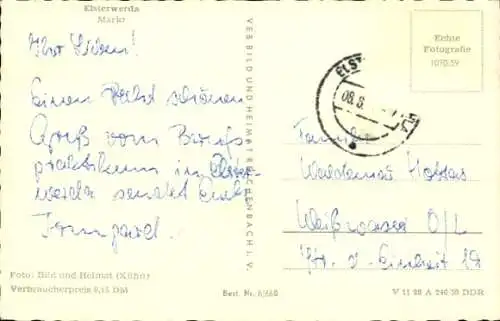 Elsterwerda
Markt
Ihr Lieben!
Einen schönen
Gruß vom Berufs
praktikum in Elster-
werda sendet Euch
VEB BILD UND HEIMAT REICHENBACH i. V.
Echte
Fotografie
1070/59
ELST
08.8.
Familie
Waldemar
Weißwasser O/L
Str. d. Einheit 12
Foto: Bild und Heimat (Kühn)
Verbraucherpreis 0,15 DM
Best. Nr.
V 11 28 A 240/59 DDR